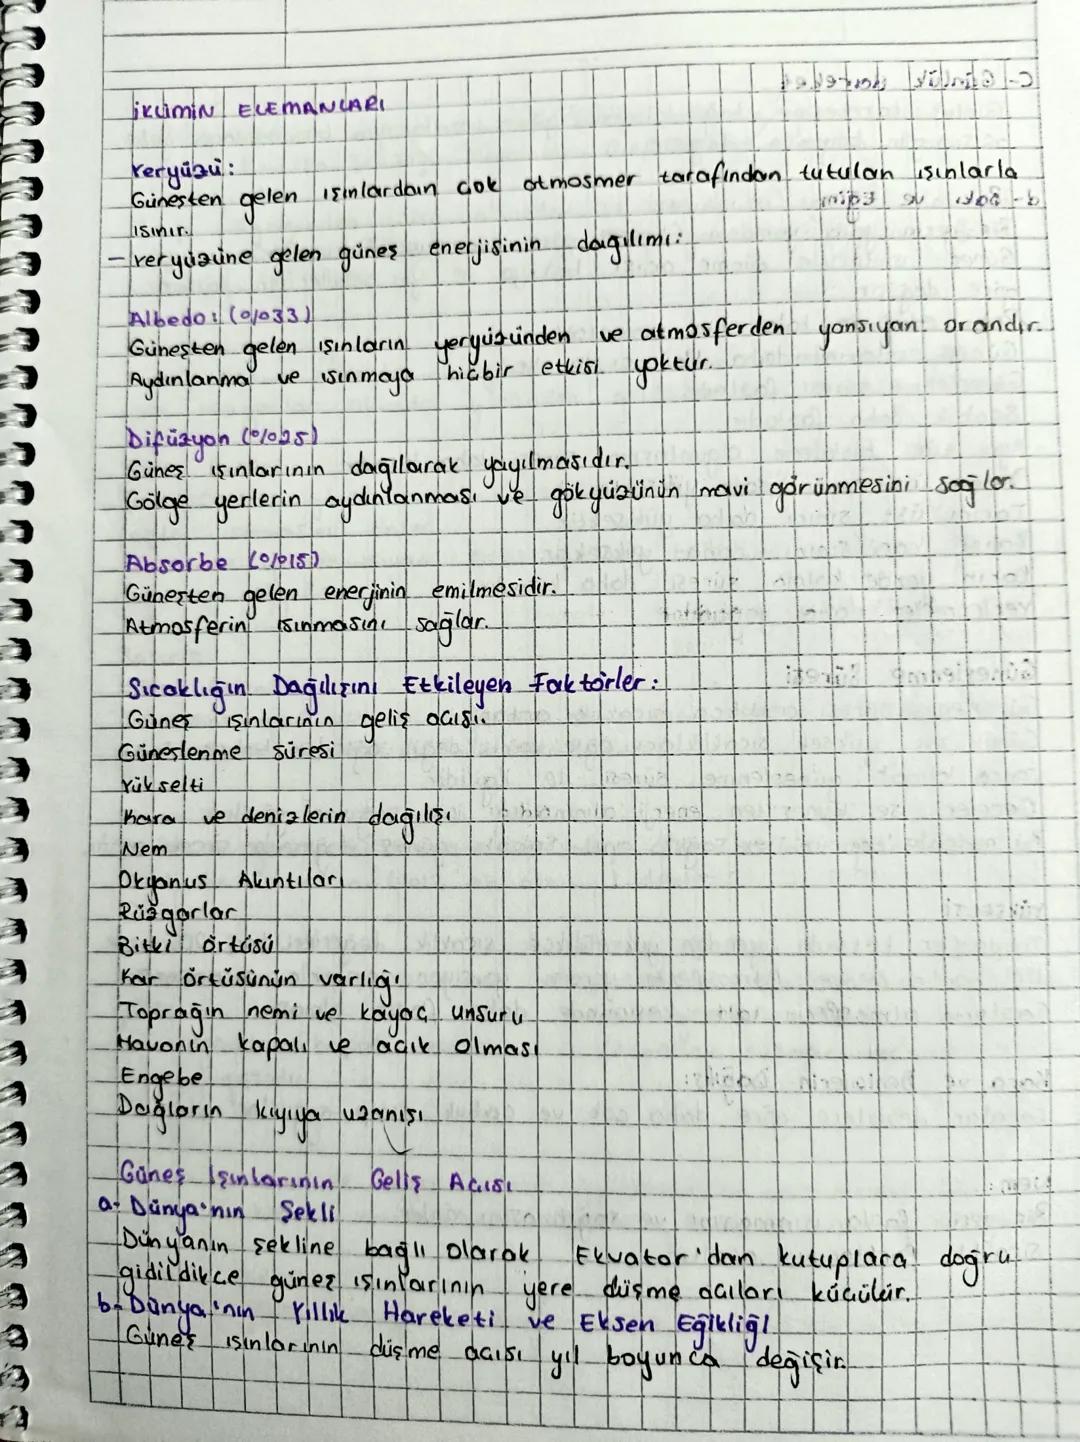 İKLİMİN ELEMANLARI
Yeryüzü:
Güneşten gelen ışınlardan çok atmosmer tarafından tutulan ışınlarla
ısınır.
- Yeryüzüne gelen güneş enerjisinin dağılımı:
Albedo: (%33)
Güneşten gelen ışınların yeryüzünden ve atmosferden yansıyan orandır.
Aydınlanma ve ısınmaya hiçbir etkisi yoktur.
Difüzyon (%25)
Güneş ışınlarının dağılarak yayılmasıdır.
Gölge yerlerin aydınlanması ve gökyüzünün mavi görünmesini sağlar.
Absorbe (%15)
Güneşten gelen enerjinin emilmesidir.
Atmosferin ısınmasını sağlar.
Sıcaklığın Dağılışını Etkileyen Faktörler:
Güneş ışınlarının geliş açısı.
Güneşlenme süresi
Yükselti
Kara ve denizlerin dağılışı
Nem
Okyanus Akıntıları
Rüzgarlar
Bitki örtüsü
Kar örtüsünün varlığı
Toprağın nemi ve kayaç unsuru
Havanın kapalı ve açık olması
Engebe
Dağların kıyıya uzanışı
Güneş Işınlarının Geliş Açısı
a- Dünya'nın Şekli
Dünyanın şekline bağlı olarak Ekvator'dan kutuplara doğru
gidildikçe güneş ışınlarının yere düşme açıları küçülür.
b- Dünya'nın Yıllık Hareketi ve Eksen Eğikliği
Güneş ışınlarının düşme açısı yıl boyunca değişir.